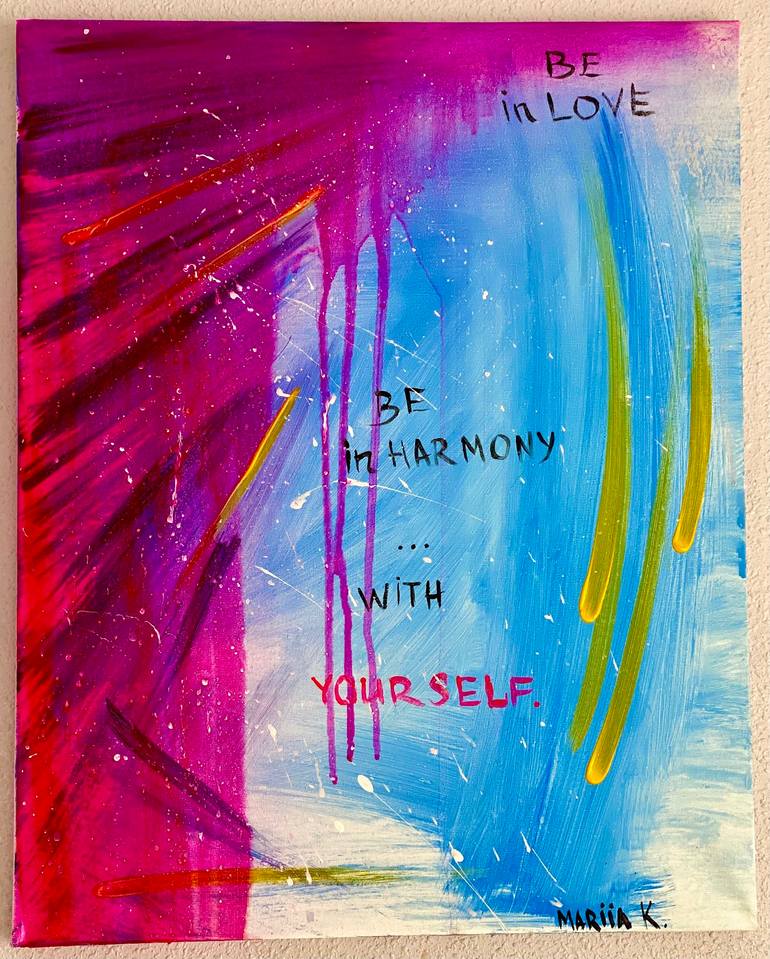 BE
in LOVE
BE
in HARMONY
...
WiTH
YOURSELF.
MARiiA K.